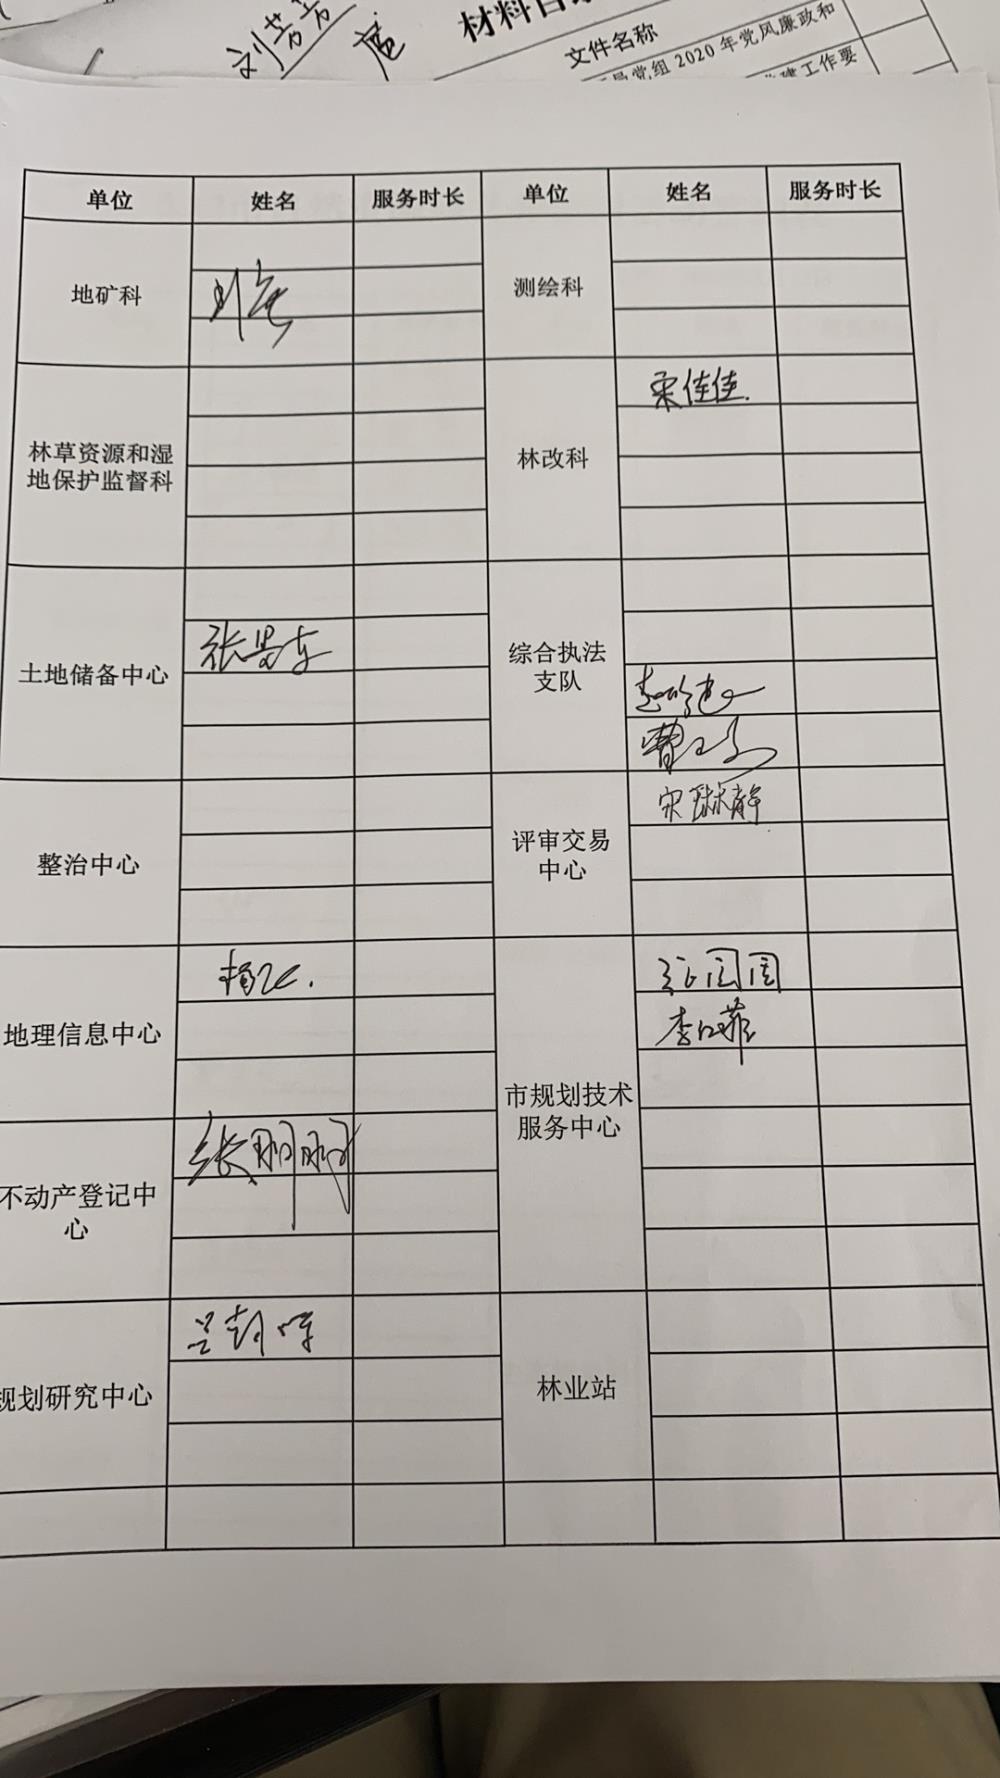 刘芳芳
材料目
文件名称
局党组 2020 年党风廉政和
建工作要
单位 姓名 服务时长 单位 姓名 服务时长
地矿科
测绘科
林草资源和湿
地保护监督科
林改科 宋佳佳
土地储备中心
综合执法
支队
整治中心
评审交易
中心
宋琳静
地理信息中心
市规划技术
服务中心
不动产登记中
心
规划研究中心
林业站